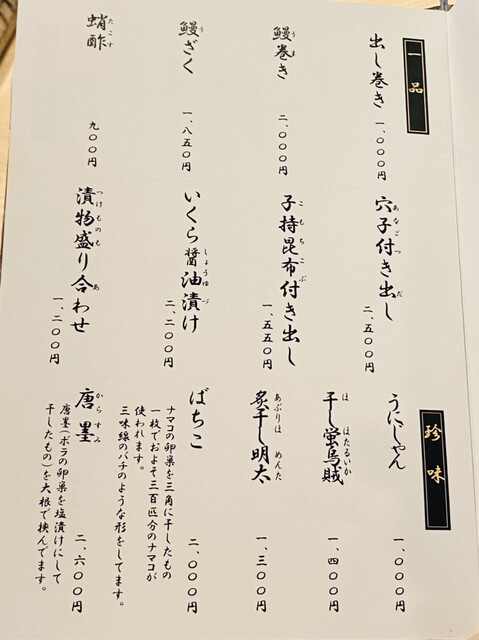 一品
出し巻き 一、〇〇〇円
鰻巻き 二、〇〇〇円
鰻ざく 一、八五〇円
蛸酢 九〇〇円
穴子付き出し 二、五〇〇円
子持昆布付き出し 一、五五〇円
いくら醬油漬け 二、二〇〇円
漬物盛り合わせ 一、二〇〇円
珍味
うにしゃん 一、〇〇〇円
干し蛍烏賊 一、四〇〇円
炙干し明太 一、三〇〇円
ばちこ 二、〇〇〇円
ナマコの卵巣を三角に干したもの
一枚でおよそ三百匹分のナマコが
使われます。
三味線のバチのような形をしてます。
唐墨 二、六〇〇円
唐墨(ボラの卵巣を塩漬けにして
干したもの)を大根で挟んでます。